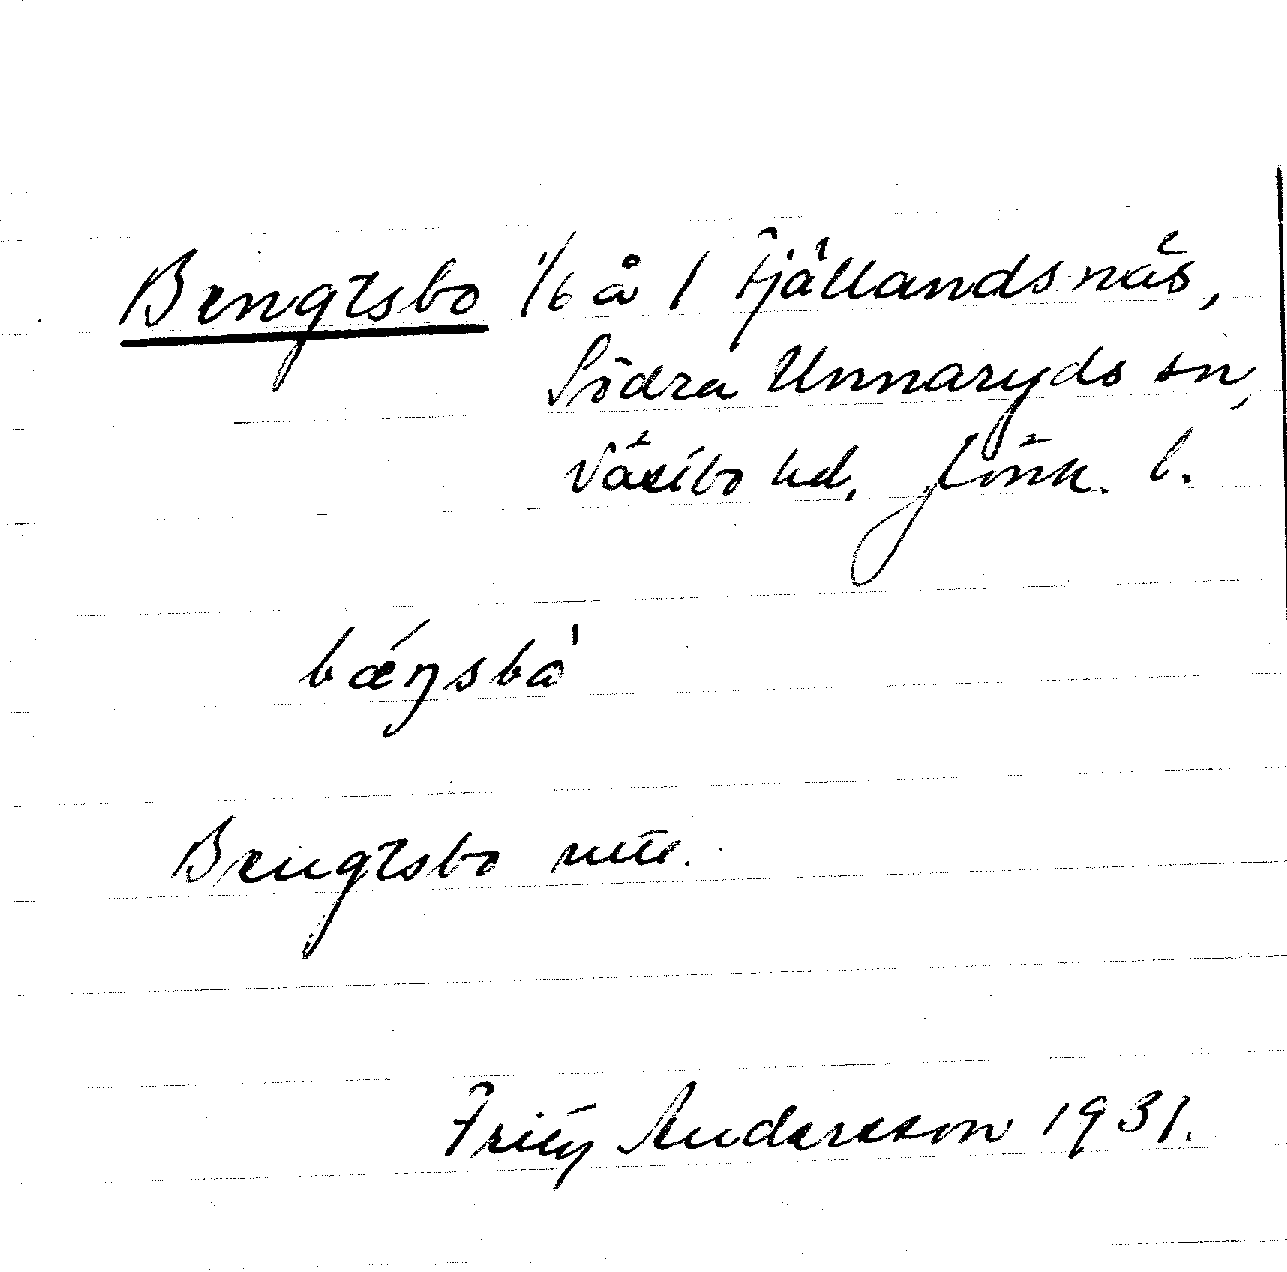 Bengtsbo 1/6 å 1 Fjällandsnäs,
Södra Unnaryds sn,
Västbo hd, Jönk. l.
bǽŋsbò
Bengtsbo
Fritz Andersson 1931.